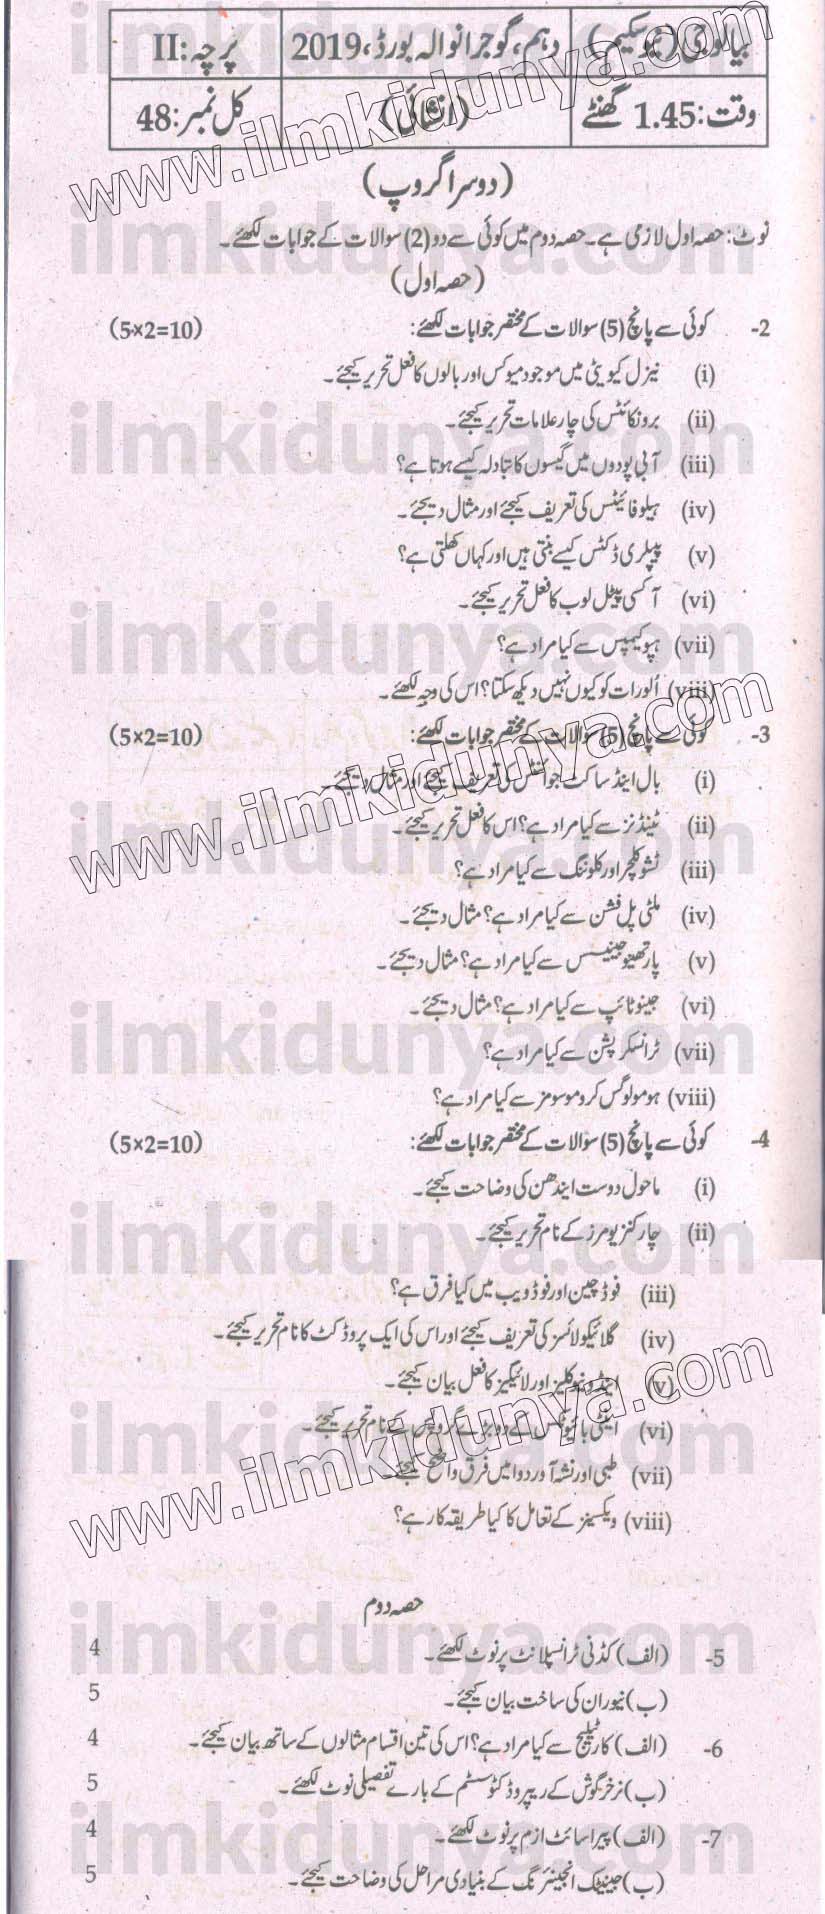 بیالوجی (نیو سکیم) دہم، گوجرانوالہ بورڈ، 2019 پرچہ: II
وقت: 1.45 گھنٹے (انشائی) کل نمبر: 48
(دوسرا گروپ)
نوٹ: حصہ اول لازمی ہے۔ حصہ دوم میں کوئی سے دو (2) سوالات کے جوابات لکھئے۔
(حصہ اول)
2- کوئی سے پانچ (5) سوالات کے مختصر جوابات لکھئے: (5×2=10)
(i) نیزل کیویٹی میں موجود میوکس اور بالوں کا فعل تحریر کیجئے۔
(ii) برونکائٹس کی چار علامات تحریر کیجئے۔
(iii) آبی پودوں میں گیسوں کا تبادلہ کیسے ہوتا ہے؟
(iv) ہیلوفائیٹس کی تعریف کیجئے اور مثال دیجئے۔
(v) پیپلری ڈکٹس کیسے بنتی ہیں اور کہاں کھلتی ہے؟
(vi) آکسی پیٹل لوب کا فعل تحریر کیجئے۔
(vii) ہپوکیمپس سے کیا مراد ہے؟
(viii) اُلو رات کو کیوں نہیں دیکھ سکتا؟ اس کی وجہ لکھئے۔
3- کوئی سے پانچ (5) سوالات کے مختصر جوابات لکھئے: (5×2=10)
(i) بال اینڈ ساکٹ جوائنٹس کی تعریف کیجئے اور مثال دیجئے۔
(ii) ٹینڈنز سے کیا مراد ہے؟ اس کا فعل تحریر کیجئے۔
(iii) ٹشو کلچر اور کلوننگ سے کیا مراد ہے؟
(iv) ملٹی پل فشن سے کیا مراد ہے؟ مثال دیجئے۔
(v) پارتھینوجینیسس سے کیا مراد ہے؟ مثال دیجئے۔
(vi) جینو ٹائپ سے کیا مراد ہے؟ مثال دیجئے۔
(vii) ٹرانسکرپشن سے کیا مراد ہے؟
(viii) ہومولوگس کروموسومز سے کیا مراد ہے؟
4- کوئی سے پانچ (5) سوالات کے مختصر جوابات لکھئے: (5×2=10)
(i) ماحول دوست ایندھن کی وضاحت کیجئے۔
(ii) چار کنزیومرز کے نام تحریر کیجئے۔
(iii) فوڈ چین اور فوڈ ویب میں کیا فرق ہے؟
(iv) گلائیکولائسز کی تعریف کیجئے اور اس کی ایک پروڈکٹ کا نام تحریر کیجئے۔
(v) اینڈونیوکلیز اور لائیگیز کا فعل بیان کیجئے۔
(vi) اینٹی بائیوٹکس کے دو بڑے گروپس کے نام تحریر کیجئے۔
(vii) طبی اور نشہ آور دوا میں فرق واضح کیجئے۔
(viii) ویکسینز کے تعامل کا کیا طریقہ کار ہے؟
حصہ دوم
5- (الف) کڈنی ٹرانسپلانٹ پر نوٹ لکھئے۔ 4
(ب) نیوران کی ساخت بیان کیجئے۔ 5
6- (الف) کارٹیلیج سے کیا مراد ہے؟ اس کی تین اقسام مثالوں کے ساتھ بیان کیجئے۔ 4
(ب) نر خرگوش کے ریپروڈکٹو سسٹم کے بارے تفصیلی نوٹ لکھئے۔ 5
7- (الف) پیراسائٹ ازم پر نوٹ لکھئے۔ 4
(ب) جینیٹک انجینئرنگ کے بنیادی مراحل کی وضاحت کیجئے۔ 5
www.ilmkidunya.com
www.ilmkidunya.com
www.ilmkidunya.com
ilmkidunya.com
ilmkidunya.com
ilmkidunya.com
ilmkidunya.com
ilmkidunya.com
ilmkidunya.com
ilmkidunya.com
ilmkidunya.com
ilmkidunya.com